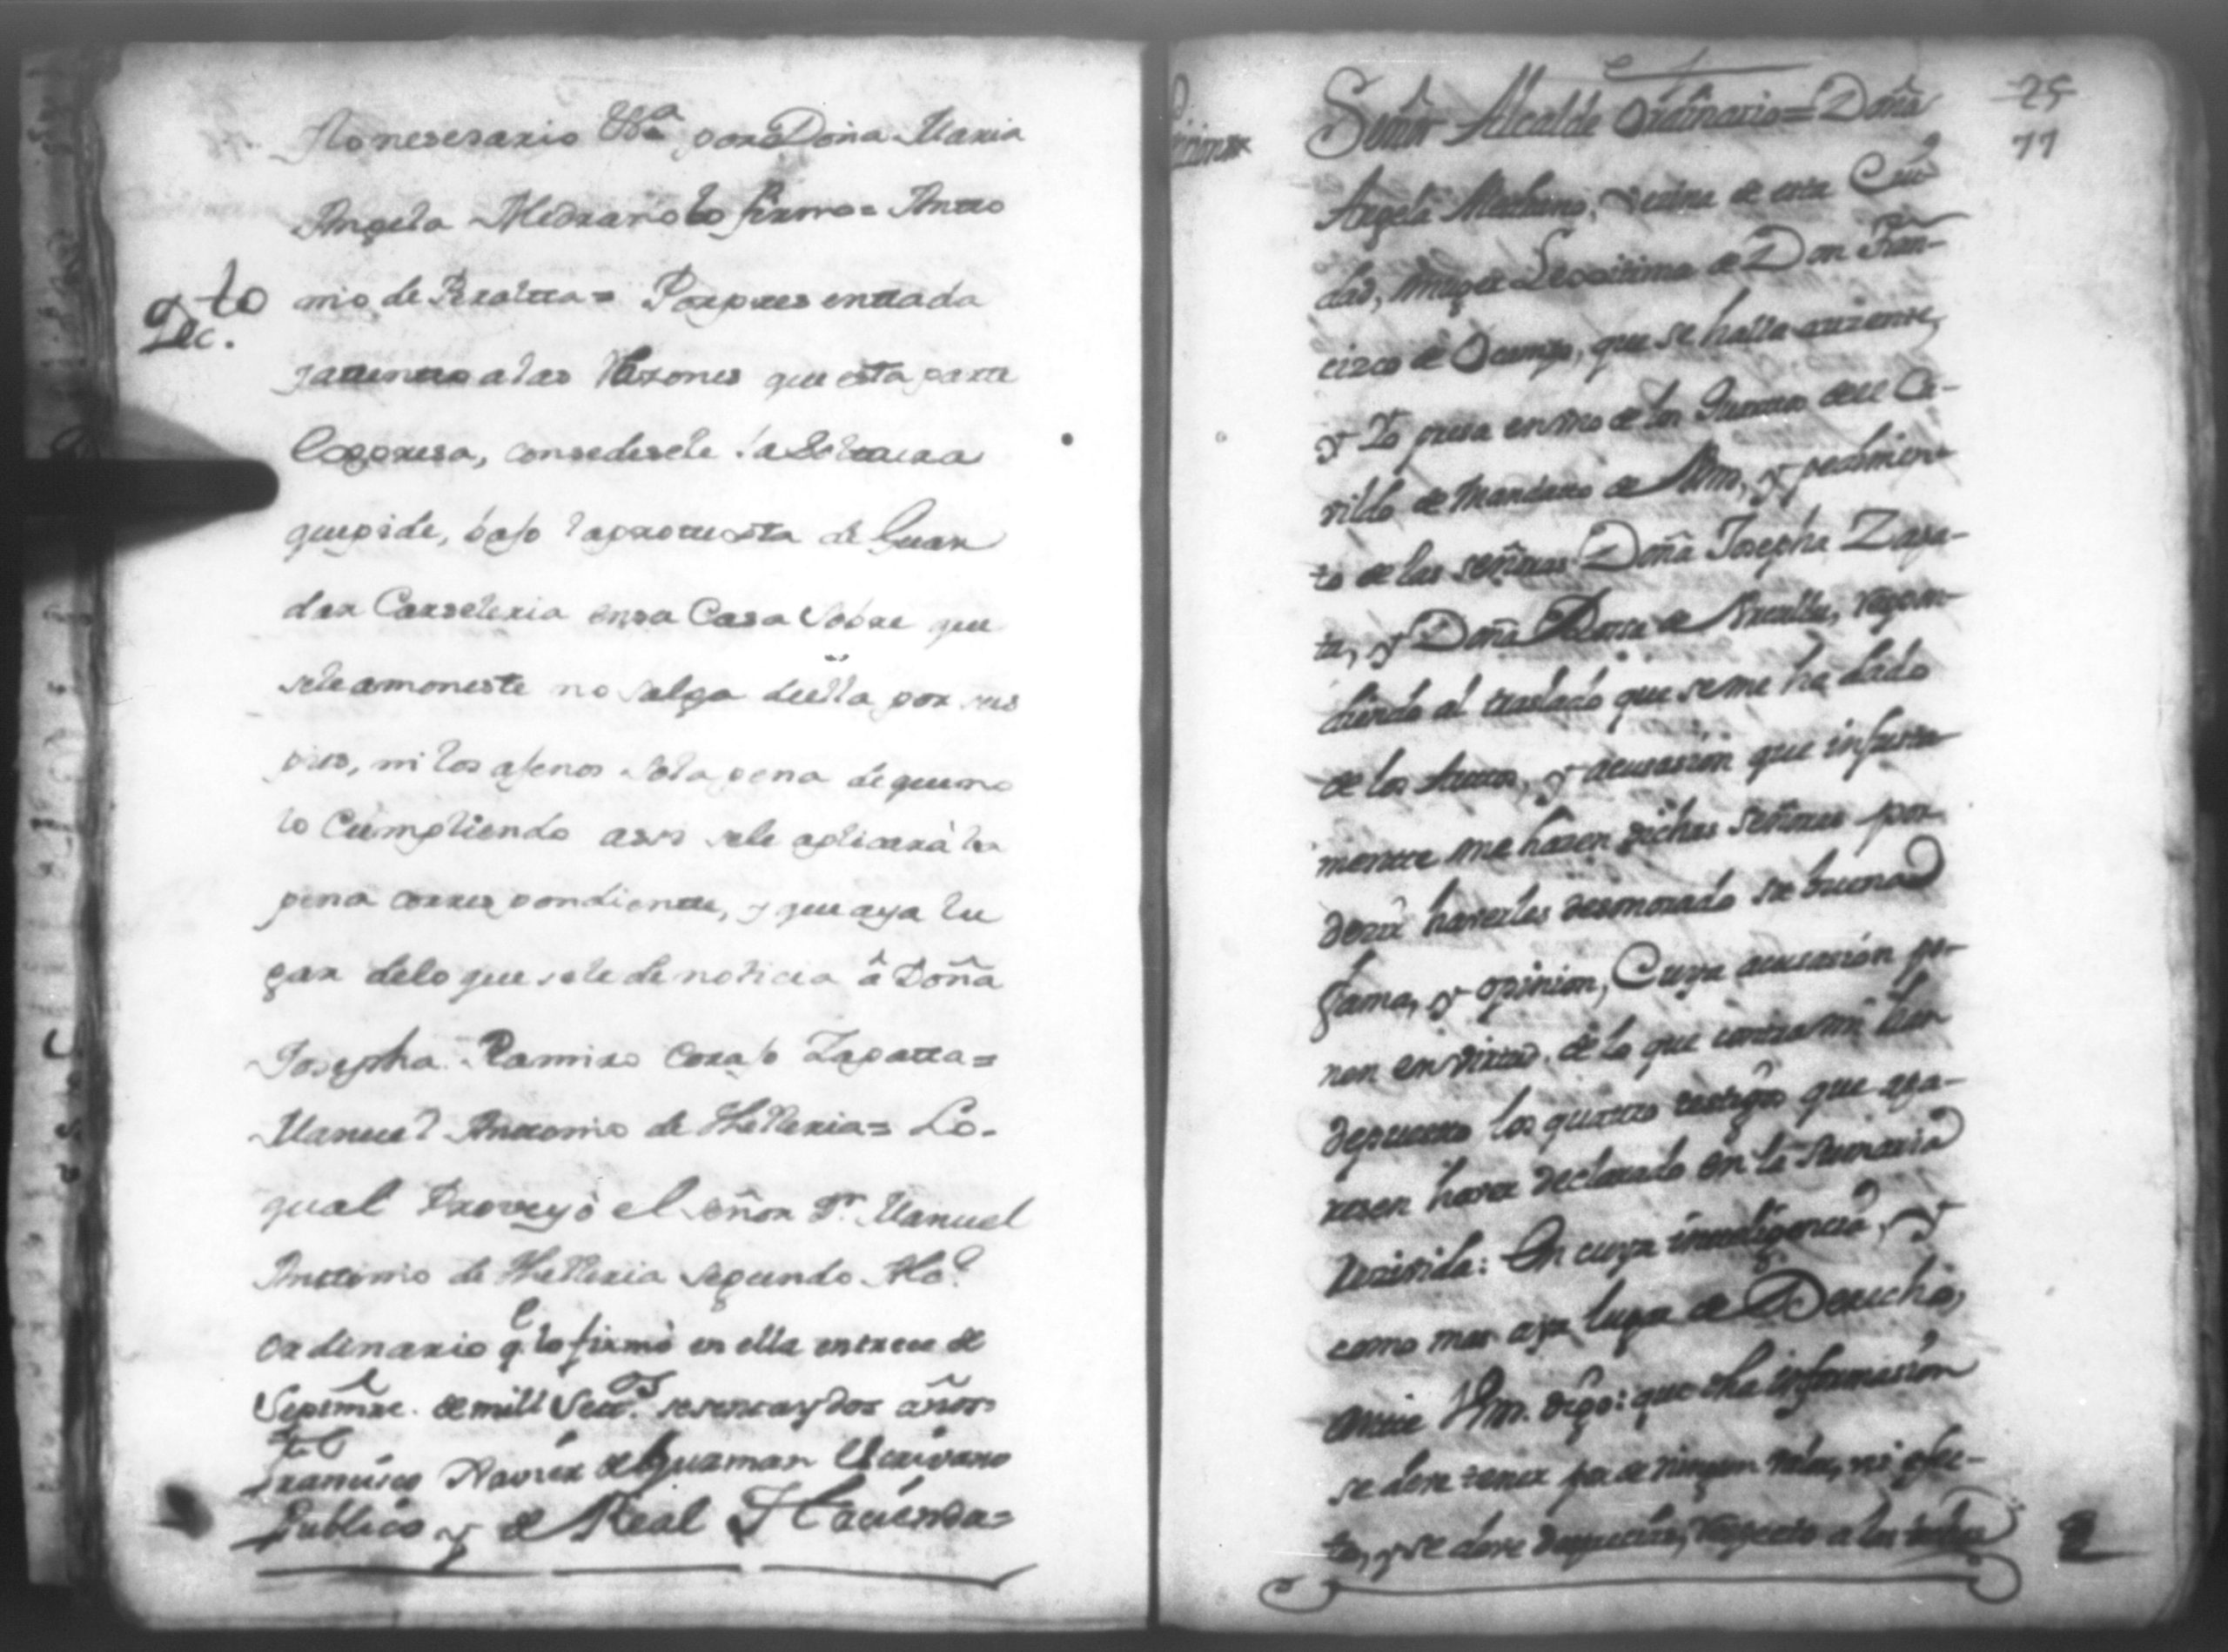 Lo nesesario &&a por Doña Maria
Angela Medrano lo firmo= Anto
nio de Peralta= Por presentada
Auto
Dec.
y atento a las Razones que esta parte
Expresa, consedesele la Soltura
que pide, bajo la protesta de Guar
dar Carseleria en sa Casa Sobre que
sele amoneste no salga de ella por sus
pies, ni los ajenos so la pena de que no
lo Cumpliendo assi sele aplicará la
pena correspondiente, y que aya lu
gar delo que sele de noticia â Doña
Josepha Ramires Corajo Zapata=
Manuel Antonio de Helleria= Lo-
qual Proveyó el Señor Dn. Manuel
Anttonio de Helleria segundo Alce
ordinario q.e lo firmó en ella en trece de
Septiembre. de mill Setos. sesenta y dos años
Francisco Xavier de Guzman Escrivano
Publico y de Real Hacienda=
25
77
Señor Alcalde Ordinario= Doña
Angela Medrano, vezina de esta Ciu
dad, muger Lexitima de Don Fran-
cisco de Ocampo, que se halla auzente,
y Yo presa en uno de los Quartos deel Ca-
vildo de mandato de Vm, y pedimen-
to de las señoras Doña Josepha Zapa-
ta, y Doña Rosa de Peralta, respon-
diendo al traslado que se me ha dado
de los Auttos, y acusasion que injusta
mente me hazen dichas señoras por
dezir haverles desonorado su buena
fama, y opinion, Cuya acusasion po-
nen en virtud de lo que contra mi han
depuesto los quatro testigos que apa-
resen haver declarado en la Sumaria
rezivida: En cuya inteligencia, y
como mas aya lugar de Derecho,
ante Vm. digo: que dha informasion
se deve tener por de ningun valor, ni efec-
to, y se deve despreciar, respecto a las
2